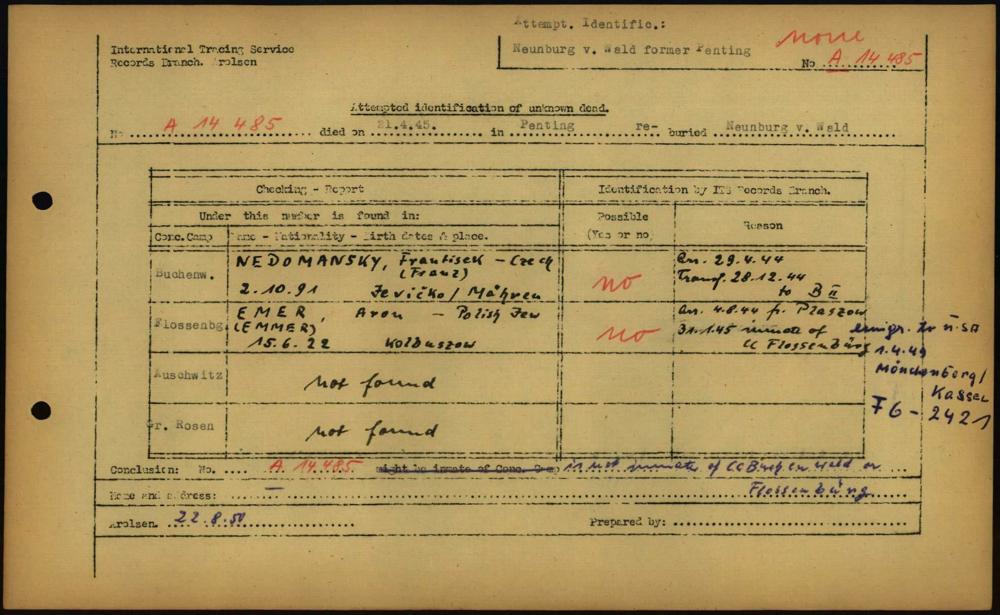 Attempt. Identific.:
International Tracing Service
Neunburg v. Wald former Penting
none
Records Branch. Arolsen
No A 14 485
Attempted identification of unknown dead.
No A 14 485 died on 21.4.45. in Penting re- buried Neunburg v. Wald
Checking - Report
Identification by ITS Records Branch.
Under this number is found in:
Possible
(Yes or no)
Reason
Conc.Camp
Name - Nationality - Birth dates & place.
Buchenw.
NEDOMANSKY, Frantisek - Czech
(Franz)
2.10.91 Jevičko/Mähren
no
Arr. 29.4.44
Transf. 28.12.44
to B II
Flossenbg.
EMER, Aron - Polish Jew
(EMMER)
15.6.22 Kolbuszow
no
Arr. 4.8.44 fr. Plaszow
31.1.45 inmate of
CC Flossenbürg
emigr. to U.SA
1.4.49
Mönchenberg/
Kassel
F6-2421
Auschwitz
not found
Gr. Rosen
not found
Conclusion: No. A 14.485 might be inmate of Conc. Camp is not inmate of CC Buchenwald or
Flossenbürg
Name and address:
Arolsen. 22.8.50
Prepared by: